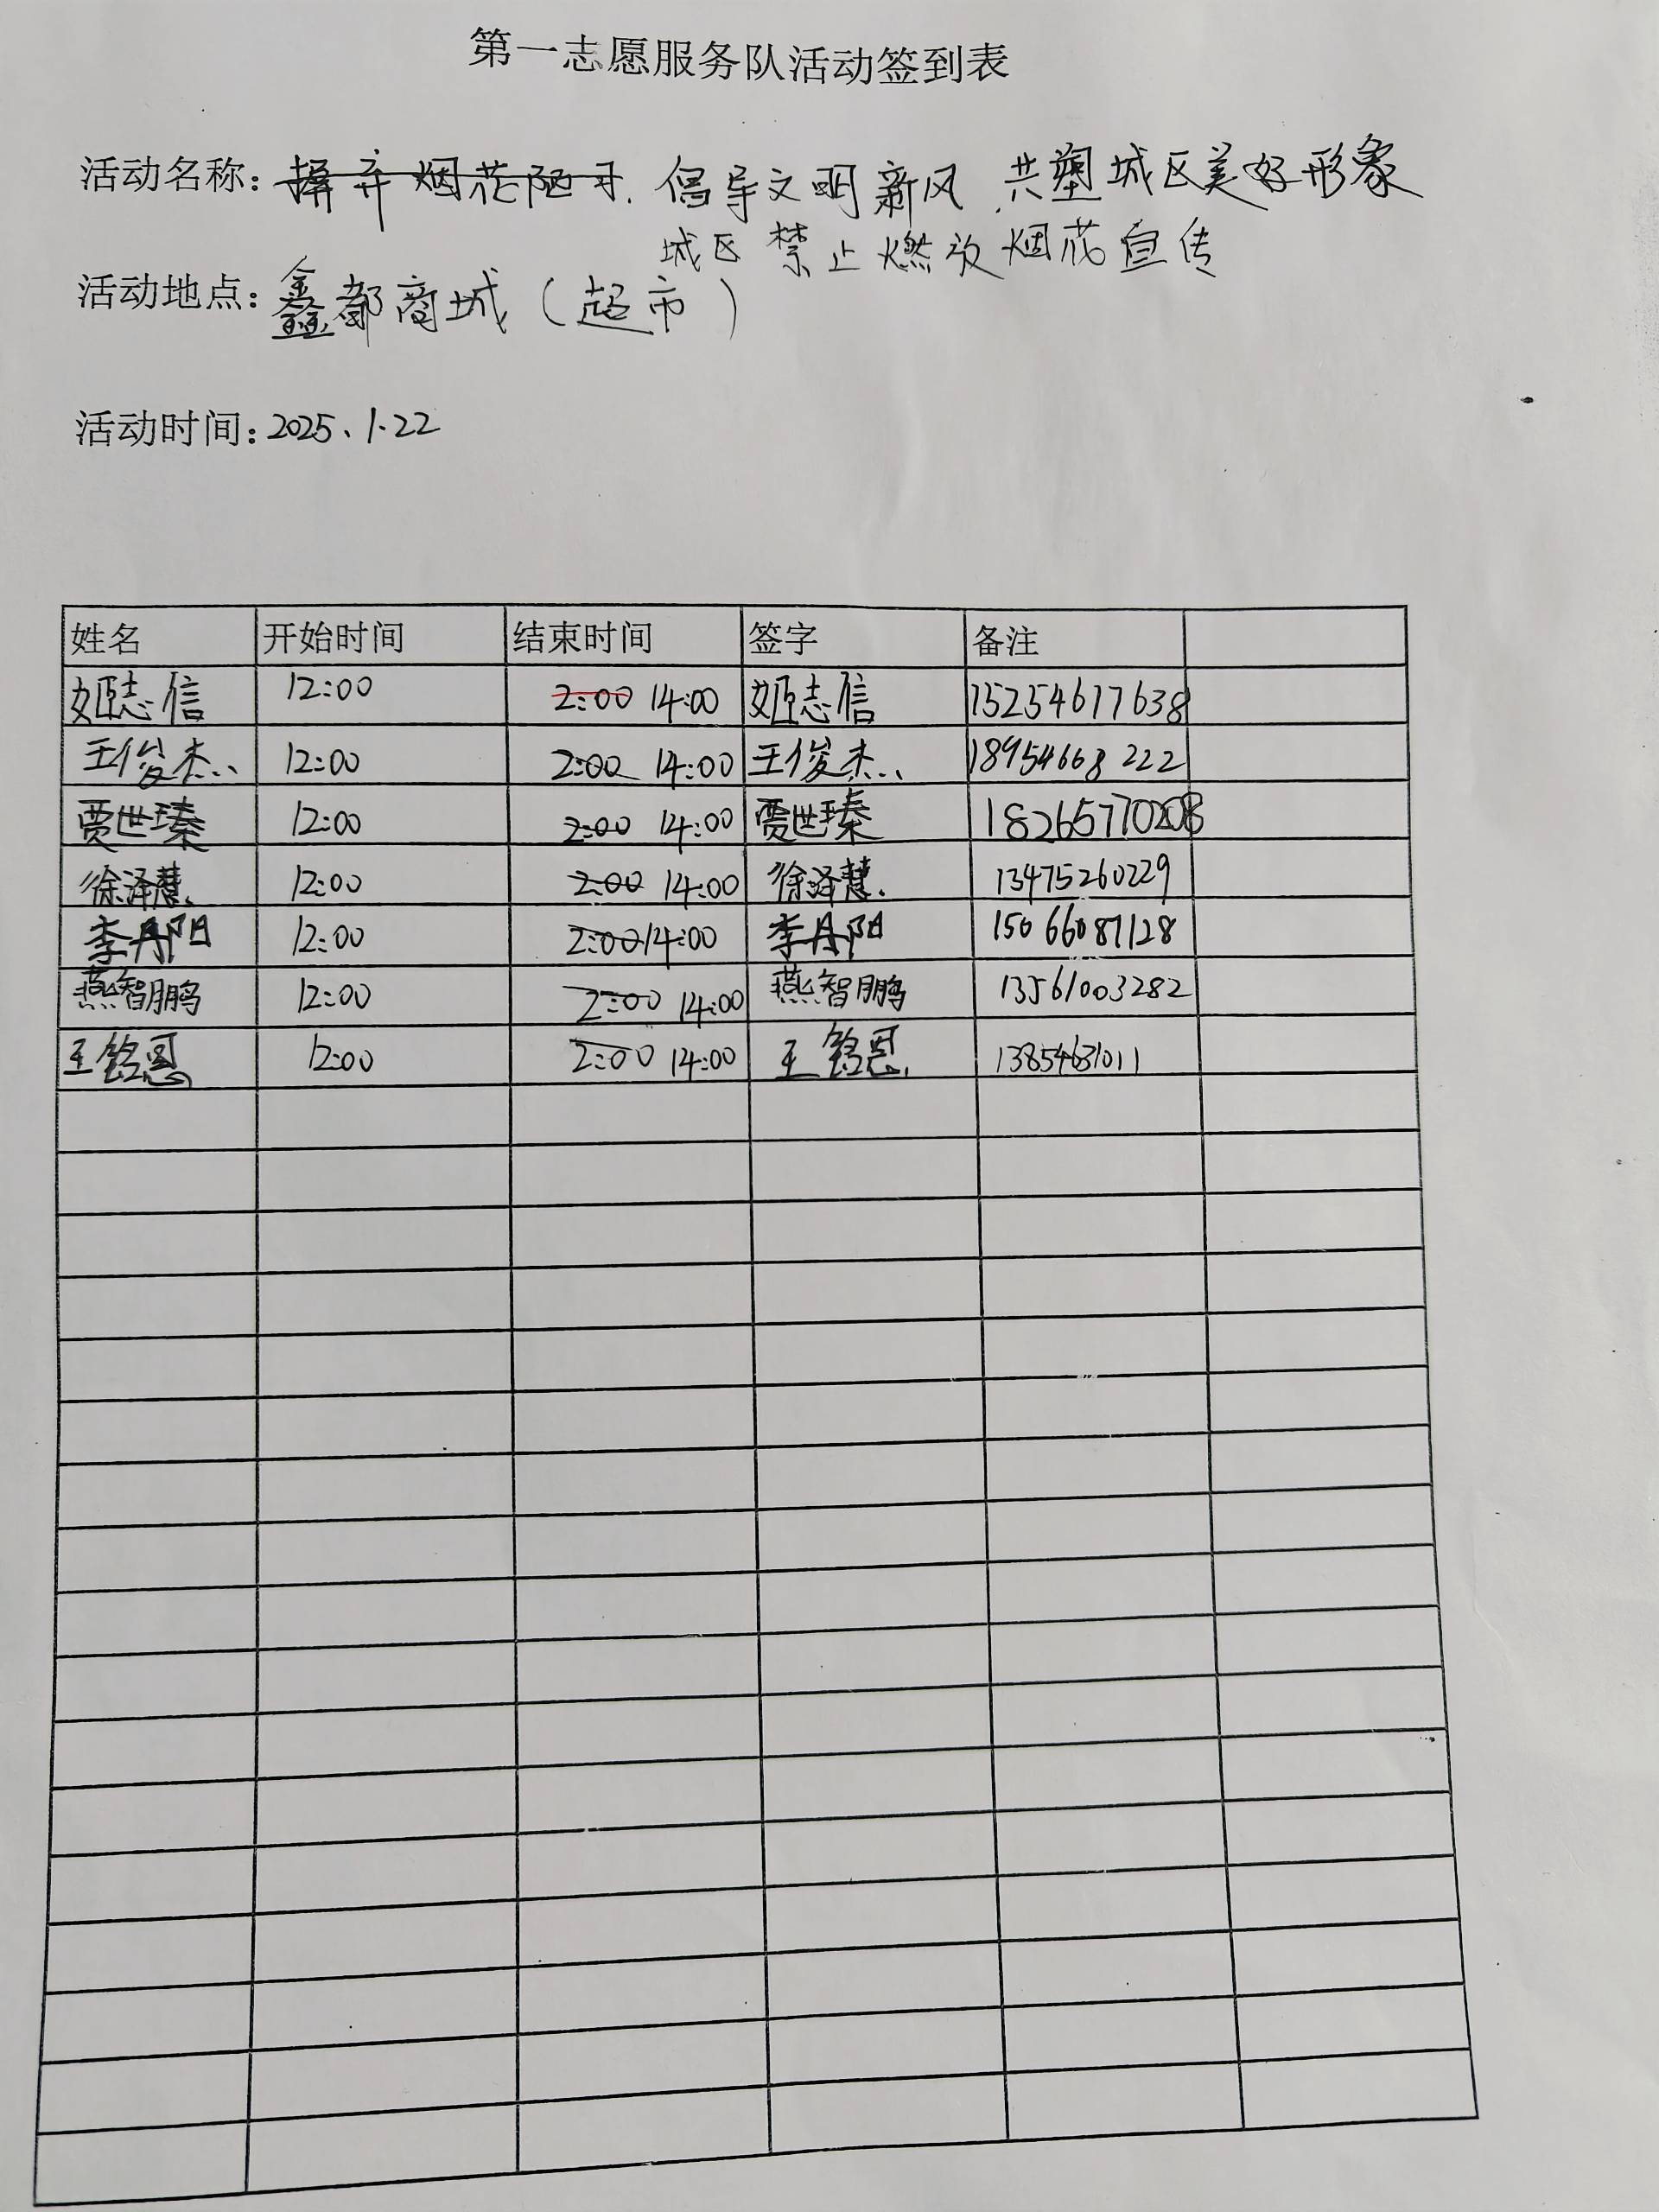 第一志愿服务队活动签到表
活动名称: 摒弃烟花陋习. 倡导文明新风.共塑城区美好形象
城区禁止燃放烟花宣传
活动地点: 鑫都商城(超市)
活动时间: 2025、1.22
姓名 开始时间 结束时间 签字 备注
姬志信 12:00 2:00 14:00 姬志信 15254617638
王俊杰 12:00 2:00 14:00 王俊杰 18954668222
贾世瑧 12:00 2:00 14:00 贾世瑧 18265770208
徐泽慧. 12:00 2:00 14:00 徐泽慧. 13475260229
李丹阳 12:00 2:00 14:00 李丹阳 15066087128
燕智鹏 12:00 2:00 14:00 燕智鹏 13561003282
王铭恩 12:00 2:00 14:00 王铭恩. 13854631011